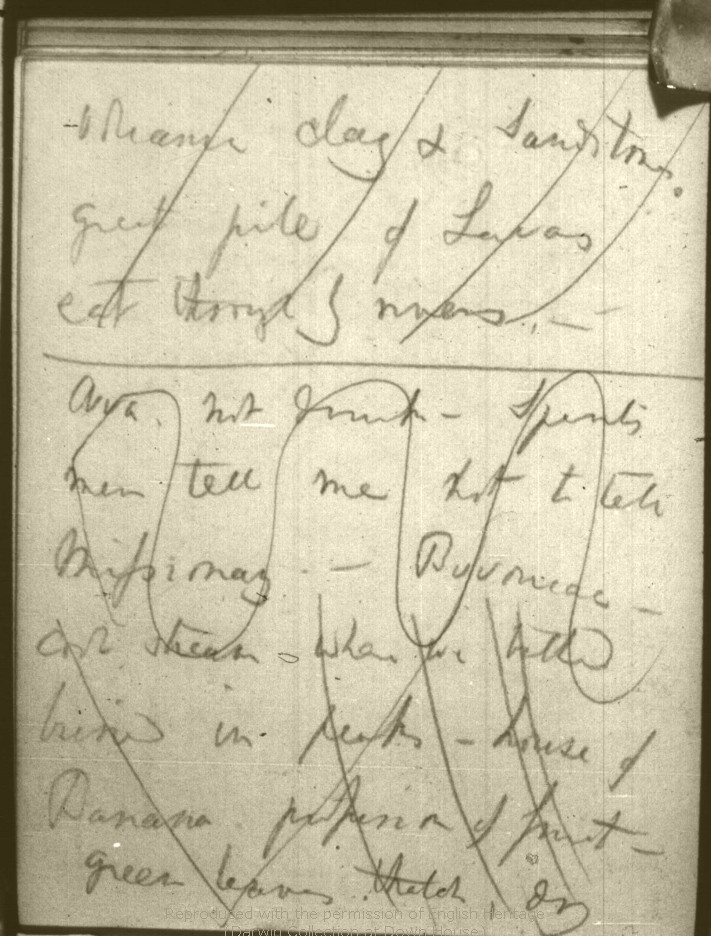 clay & Sandstone.
great pile of Lavas
eat through by rivers. —
Ava. not drunk — Spirits
men tell me not to tell
Missionary. — —
cool stream, where we bathed
buried in peaks — house of
Banana profusion of fruit —
green leaves. thatch, dry
Reproduced with the permission of English Heritage
(Darwin Collection at Down House)